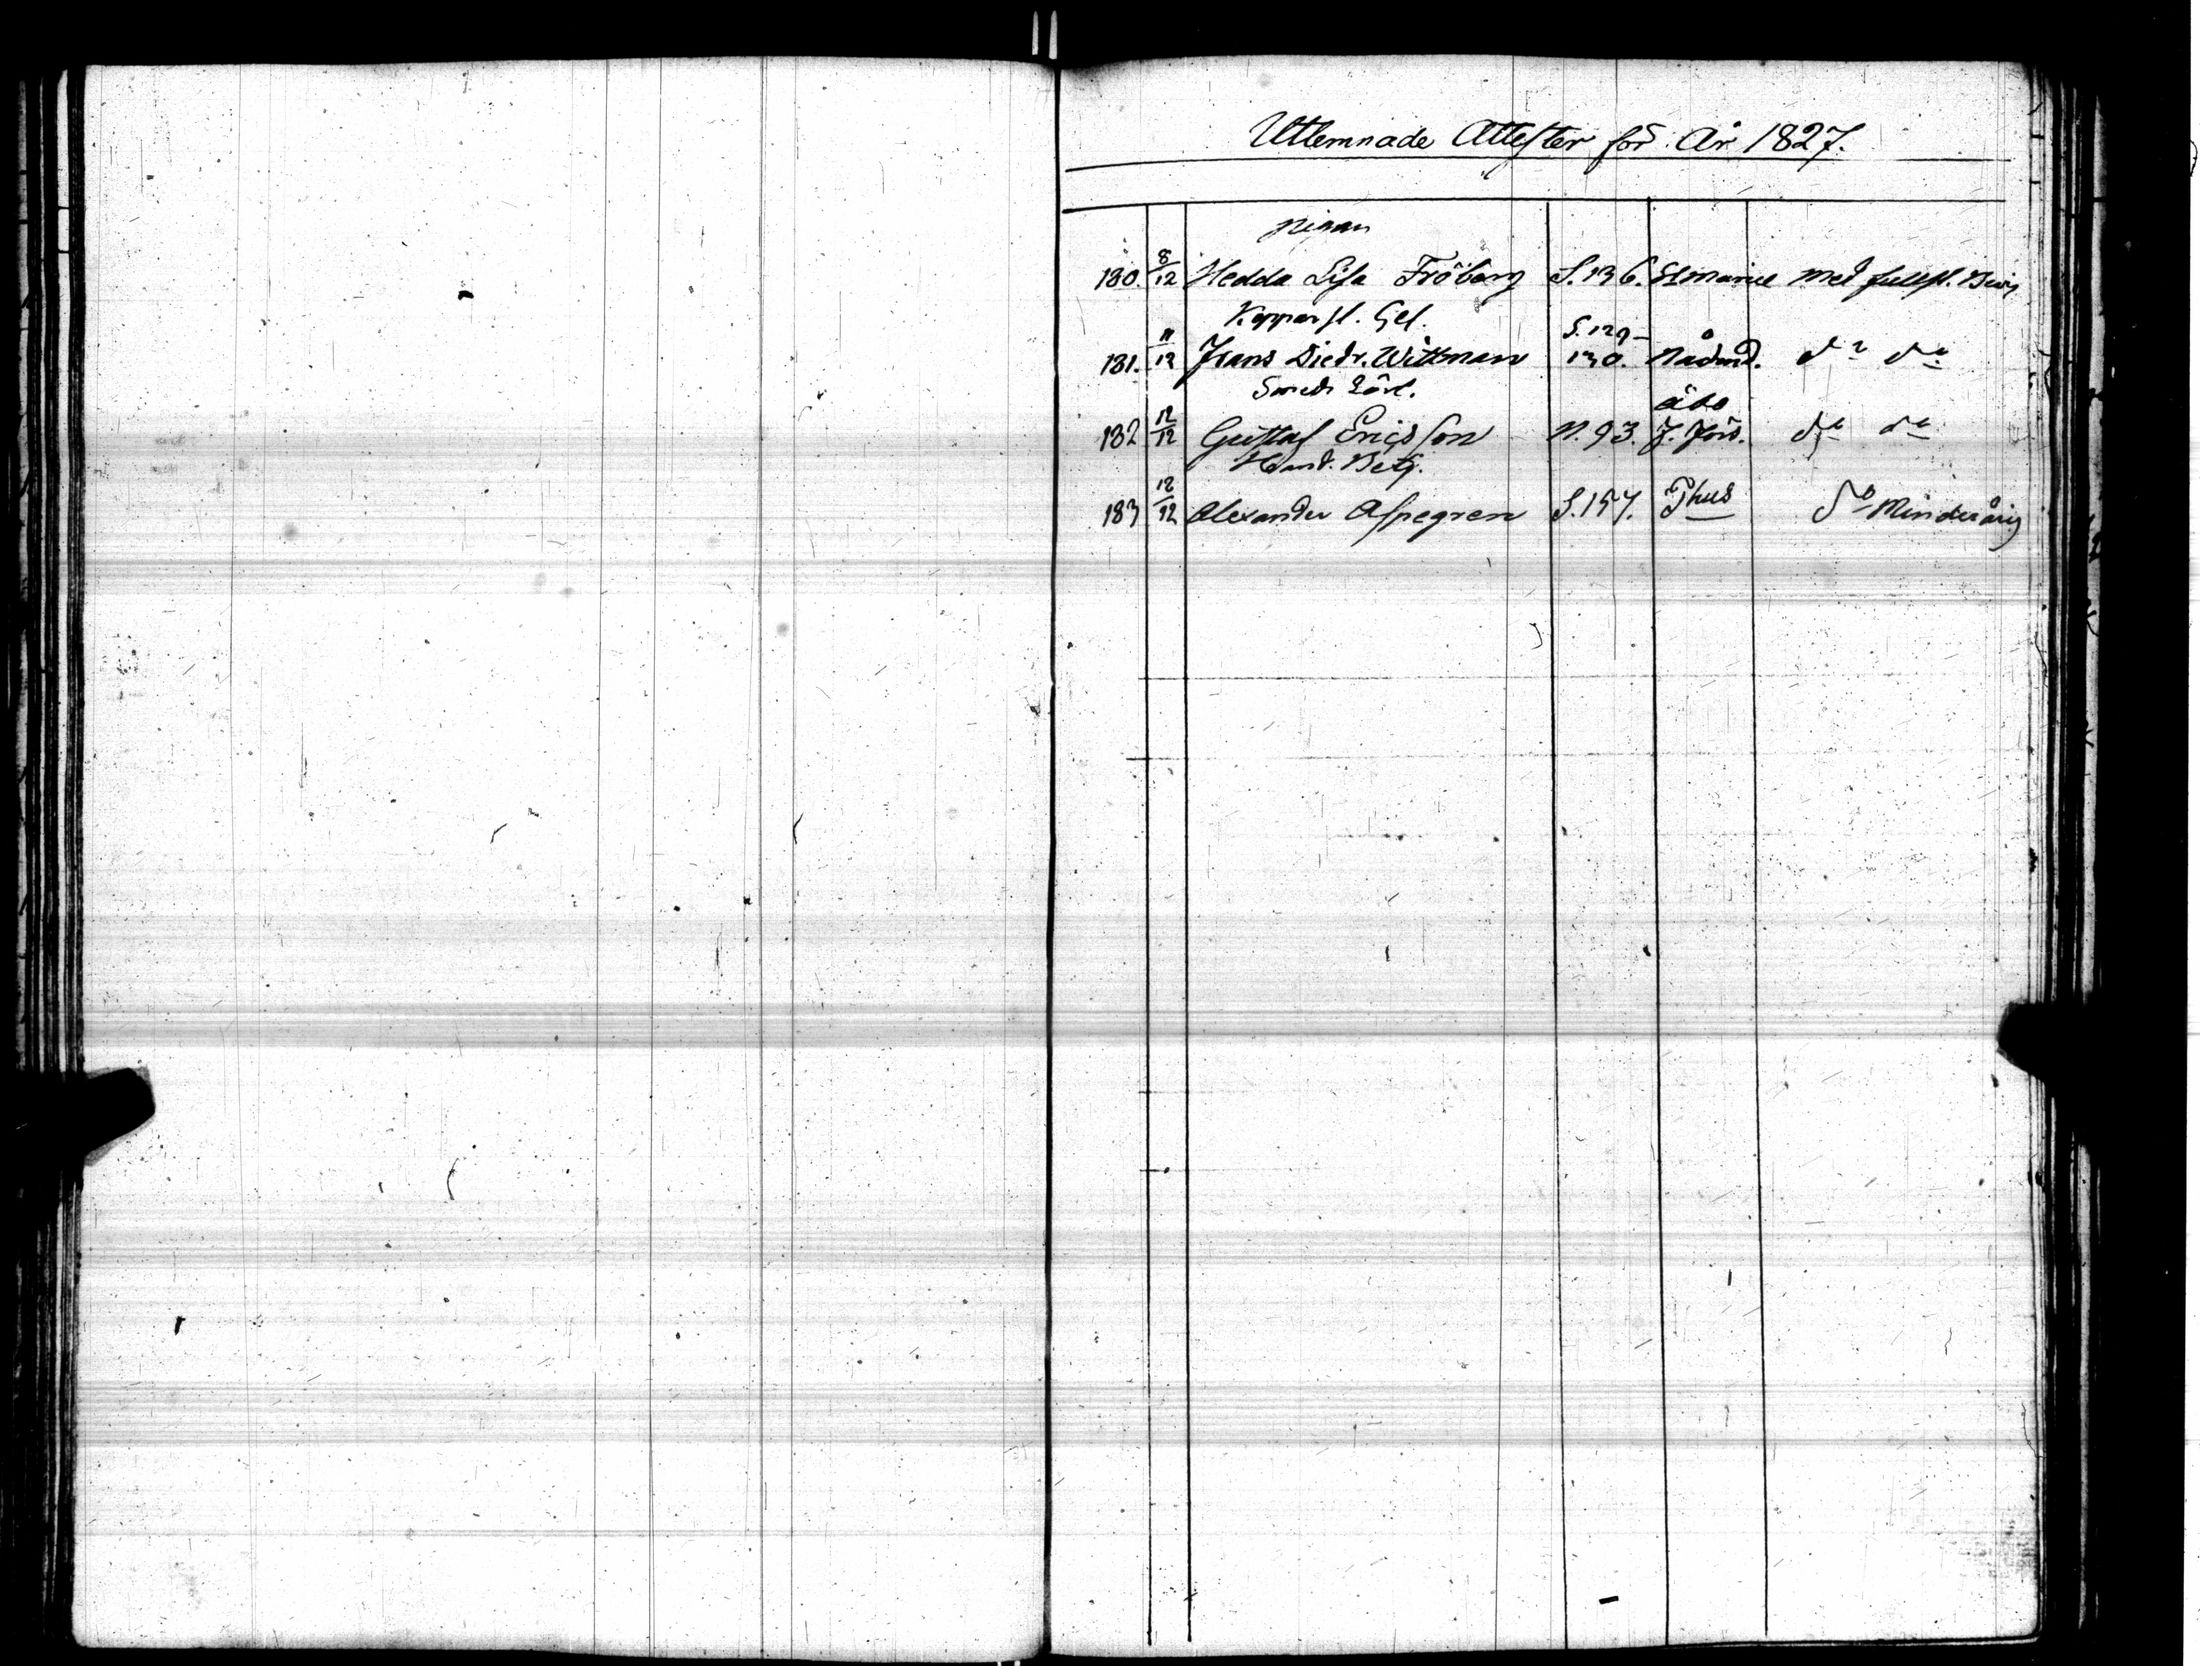 Utlemnade Attester för År 1827.
pigan
180. 8/12 Hedda Lisa Fröberg S. 136. St Marie med fullst. Bevis
Kopparsl. Gel. S. 129-
181. 11/12 Frans Diedr. Wittman 130. Nådend. do do
Smeds Lärl. Åbo
182 12/12 Gustaf Ericsson N. 93. do do
Hand. Betj.
183 12/12 Alexander Aspegren S. 157. do Minderårig